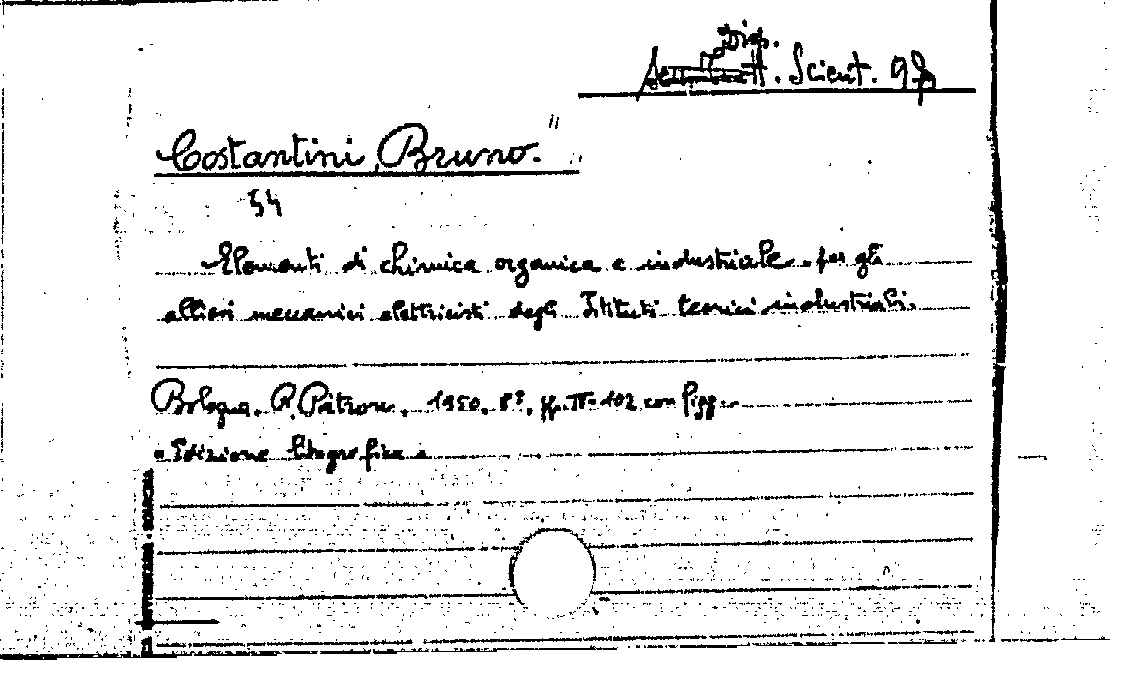 Disp.
Scient. 97
Costantini, Bruno.
54
Elementi di chimica organica e industriale per gli
allievi meccanici elettricisti degli Istituti tecnici industriali.
Bologna, R. Pàtron, 1950, 8º, pp. II-102 con figg.
"Edizione litografica"